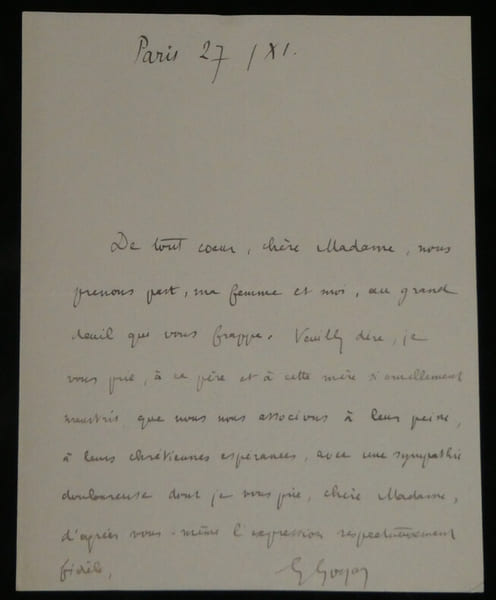 Paris 27 / XI.
De tout coeur, chère Madame, nous
prenons part, ma femme et moi, au grand
deuil que vous frappe. Veuilly dire, je
vous prie, à ce père et à cette mère si cruellement
meurtris, que nous nous associons à leur peine,
à leurs chrétiennes espérances, avec une sympathie
douloureuse dont je vous prie, chère Madame,
d'agréer vous-même l'expression respectueusement
fidèle,
G Goyau